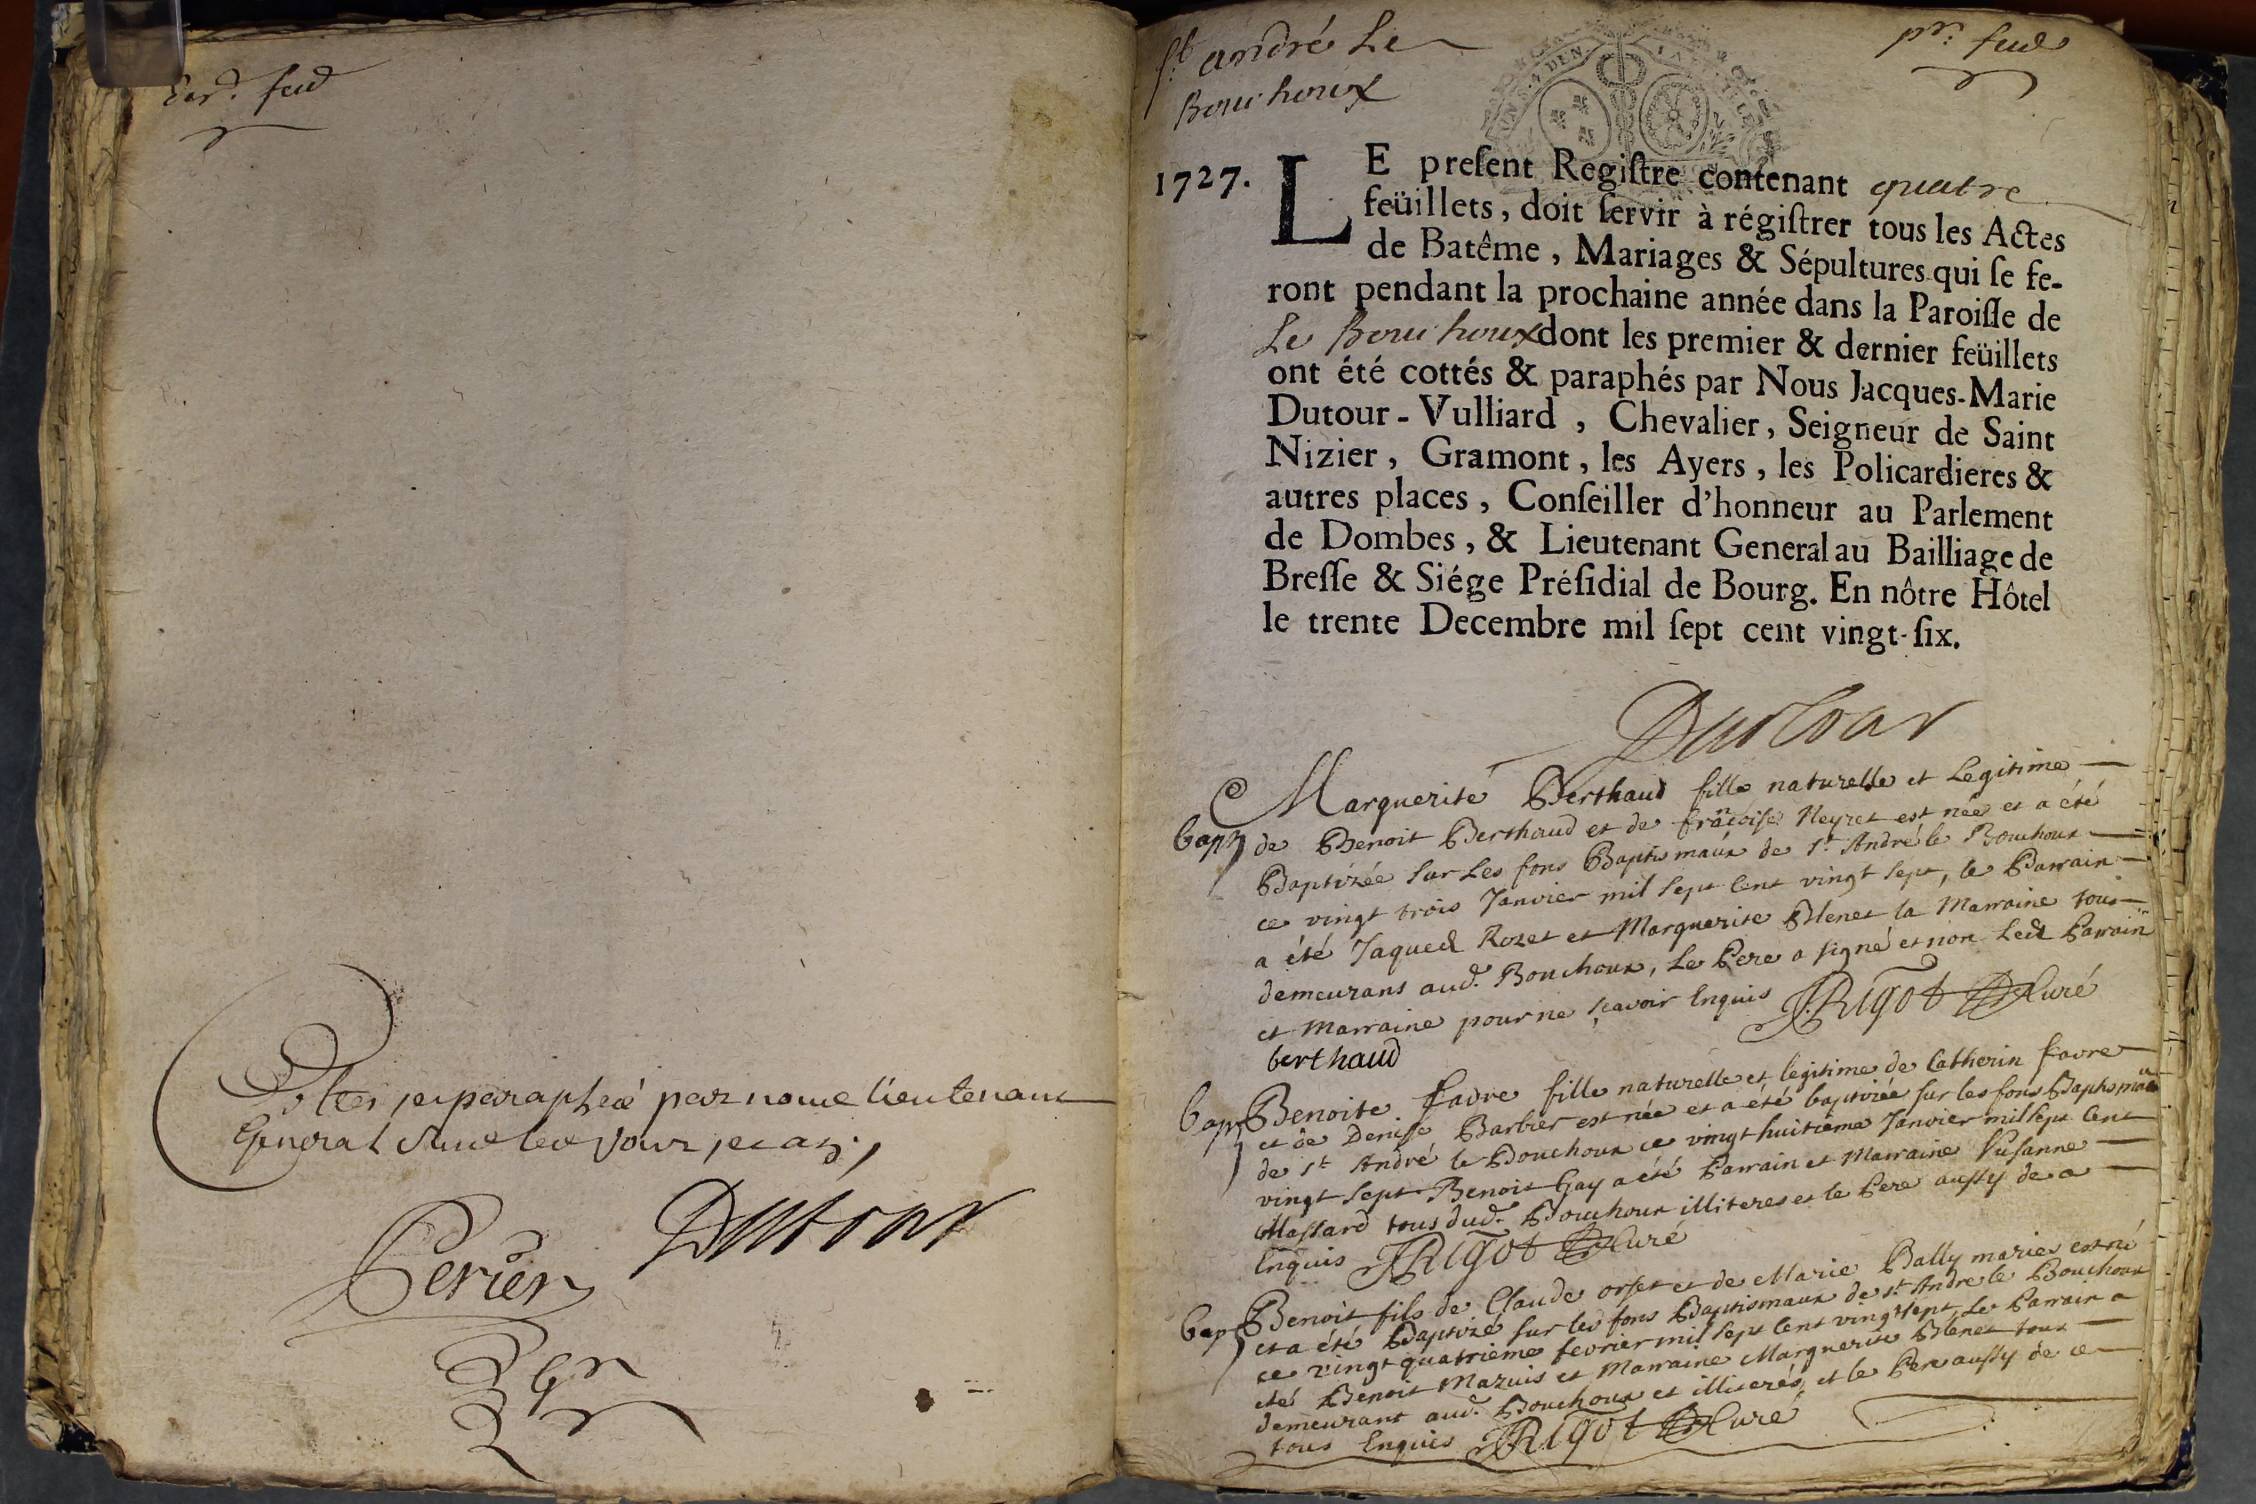 Der. feul
Cottes, et paraphé par nous lieutenant
General suivant les jour, et an,
Perier
Dutour
St. andré Le
Bouchoux
pr. feul
1727.
LE preſent Regiſtre contenant quatre
feüillets, doit ſervir à régiſtrer tous les Actes
de Batême, Mariages & Sépultures qui ſe fe-
ront pendant la prochaine année dans la Paroiſſe de
Le Bouchoux dont les premier & dernier feüillets
ont été cottés & paraphés par Nous Jacques-Marie
Dutour-Vulliard, Chevalier, Seigneur de Saint
Nizier, Gramont, les Ayers, les Policardieres &
autres places, Conſeiller d'honneur au Parlement
de Dombes, & Lieutenant General au Bailliage de
Breſſe & Siége Préſidial de Bourg. En nôtre Hôtel
le trente Decembre mil ſept cent vingt-ſix.
Dutour
Marguerite Berthaud fille naturelle et Legitime
bap de Benoit Berthaud et de francoise Neyret est née et a été
Baptizée sur Les fons Baptismaux de St. André le Bouchoux
ce vingt trois Janvier mil sept Cent vingt sept, le Parrain
a été Jaques Rozet et Marguerite Blenet la Marraine tous
demeurans aud. Bouchoux, Le Pere a signé et non Led Parrain
et Marraine pour ne sçavoir Enquis JRigot Curé
berthaud
bap Benoite Favre fille naturelle et legitime de Catherin favre
et de Denise Barbier est née et a été baptizée sur les fons Baptismaux
de St André le Bouchoux ce vingt huitieme Janvier mil sept Cent
vingt sept. Benoit Gay a été Parrain et Marraine Susanne
Massard tous dud. Bouchoux illiteres et le Pere aussy de a
Enquis JRigot Curé
bap Benoit fils de Claude orset et de Marie Bally mariés est né
et a été Baptizé sur les fons Baptismaux de St. André le Bouchoux
ce vingt quatrieme fevrier mil sept Cent vingt sept, Le Parrain a
eté Benoit Mazuis et Marraine Marguerite Blenet tous
demeurant aud. Bouchoux et illiterés, et le Pere aussy de ce
tous Enquis JRigot Curé